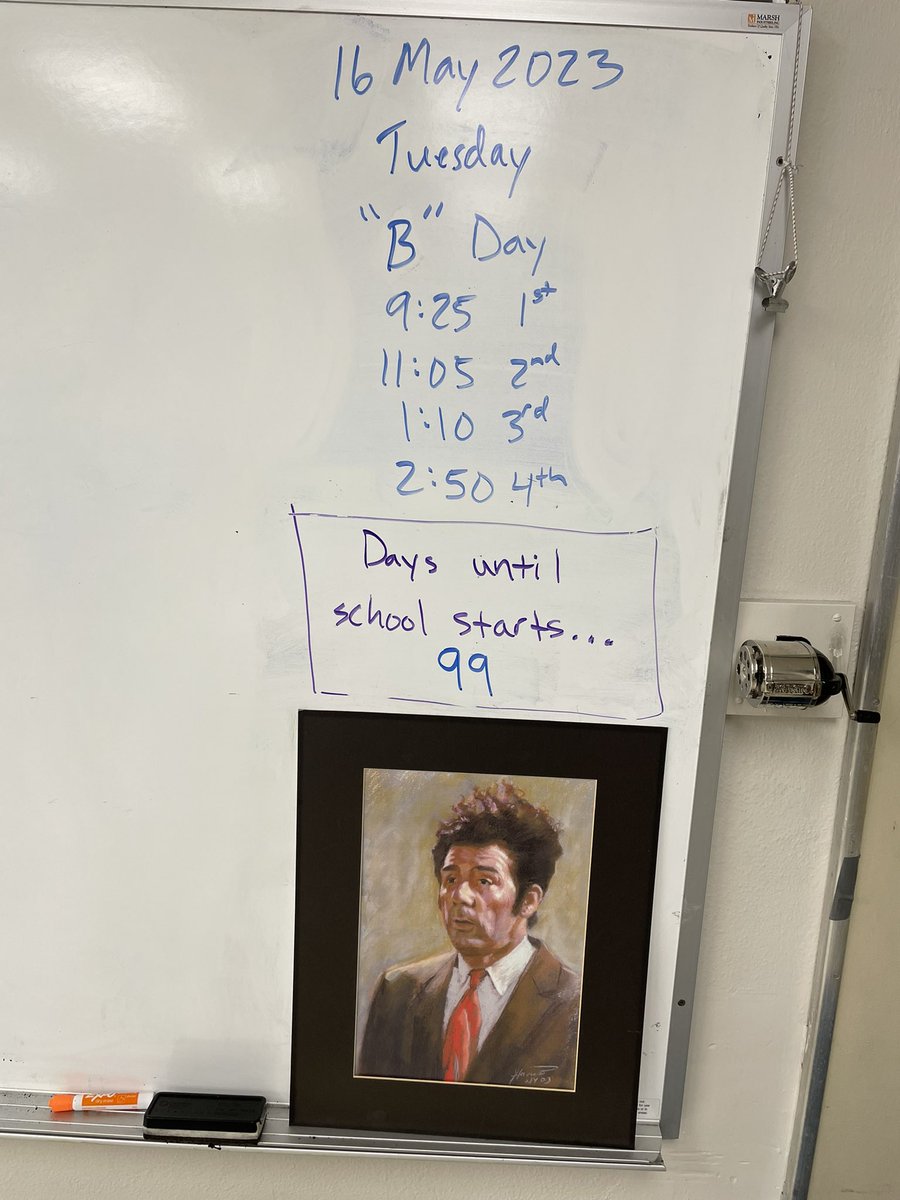 MARSH
16 May 2023
Tuesday
"B" Day
9:25 1st
11:05 2nd
1:10 3rd
2:50 4th
Days until
school starts...
99